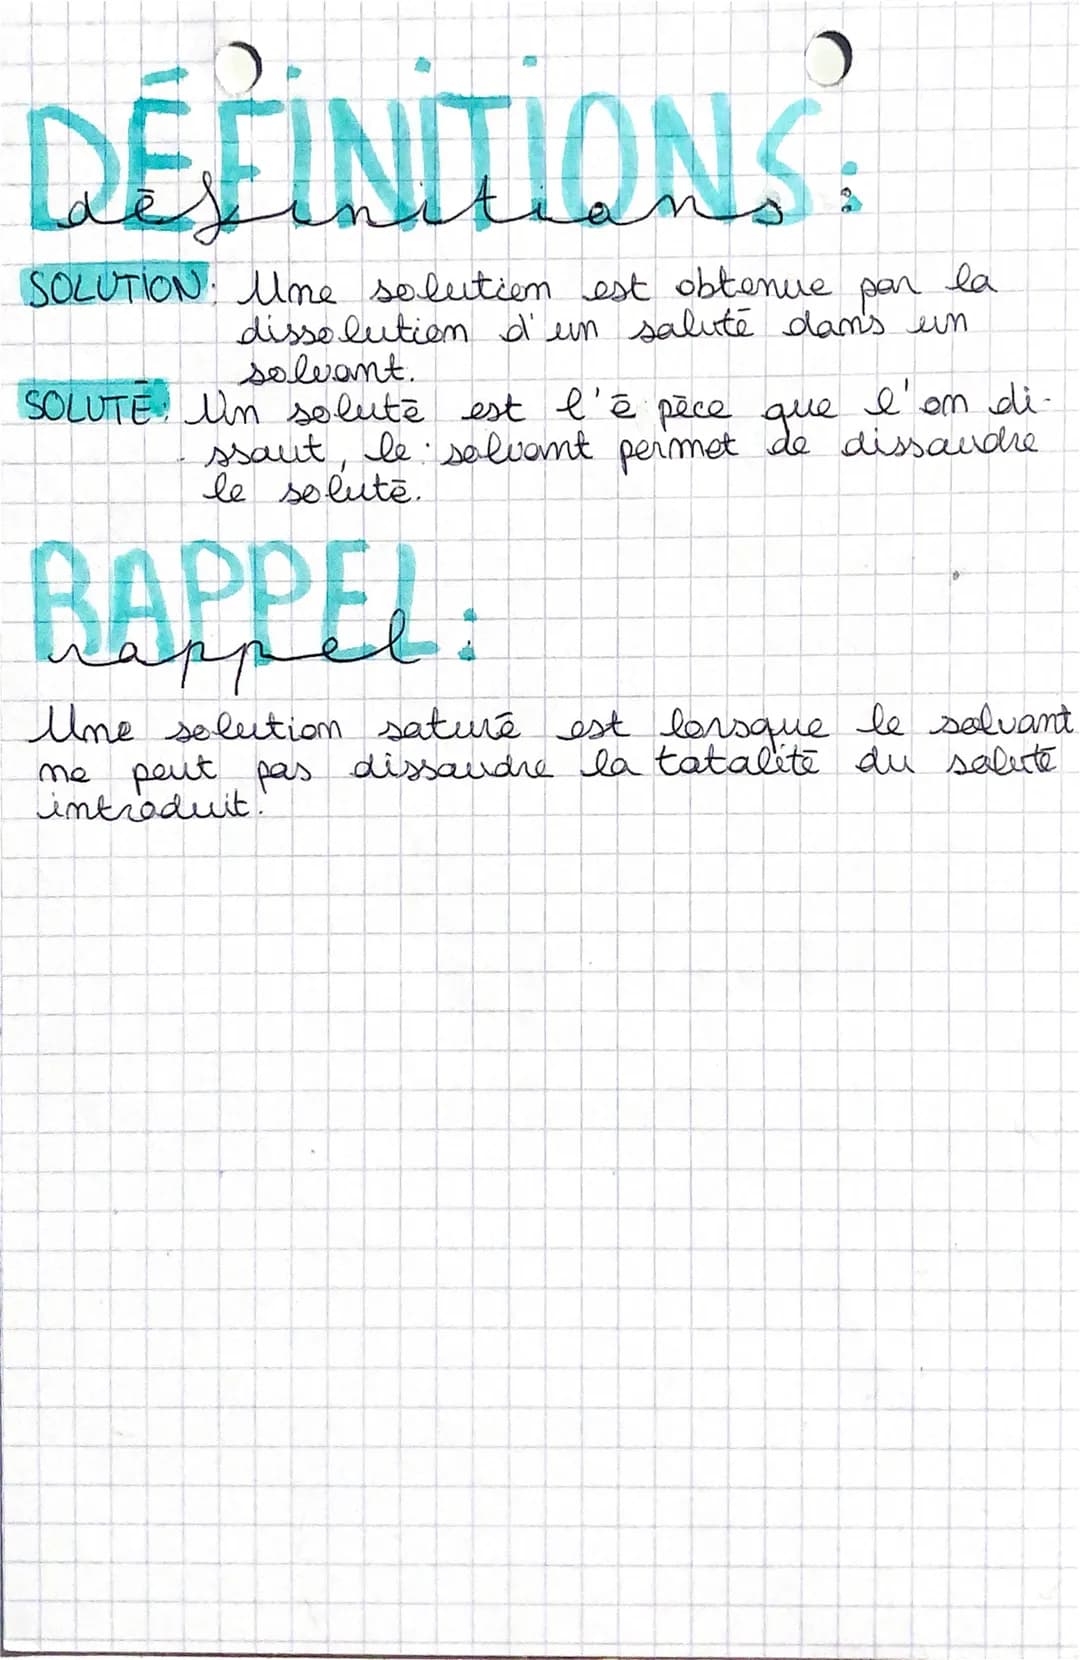 DÉFINITIONS:
définitions:
SOLUTION: Une solution est obtenue par la
dissolution d'un soluté dans un
solvant.
SOLUTÉ: Un soluté est l'é pèce que l'on di-
ssout, le solvant permet de dissoudre
le soluté.
RAPPEL:
rappel:
Une solution saturé est lorsque le solvant
ne peut pas dissoudre la totalité du soluté
introduit.